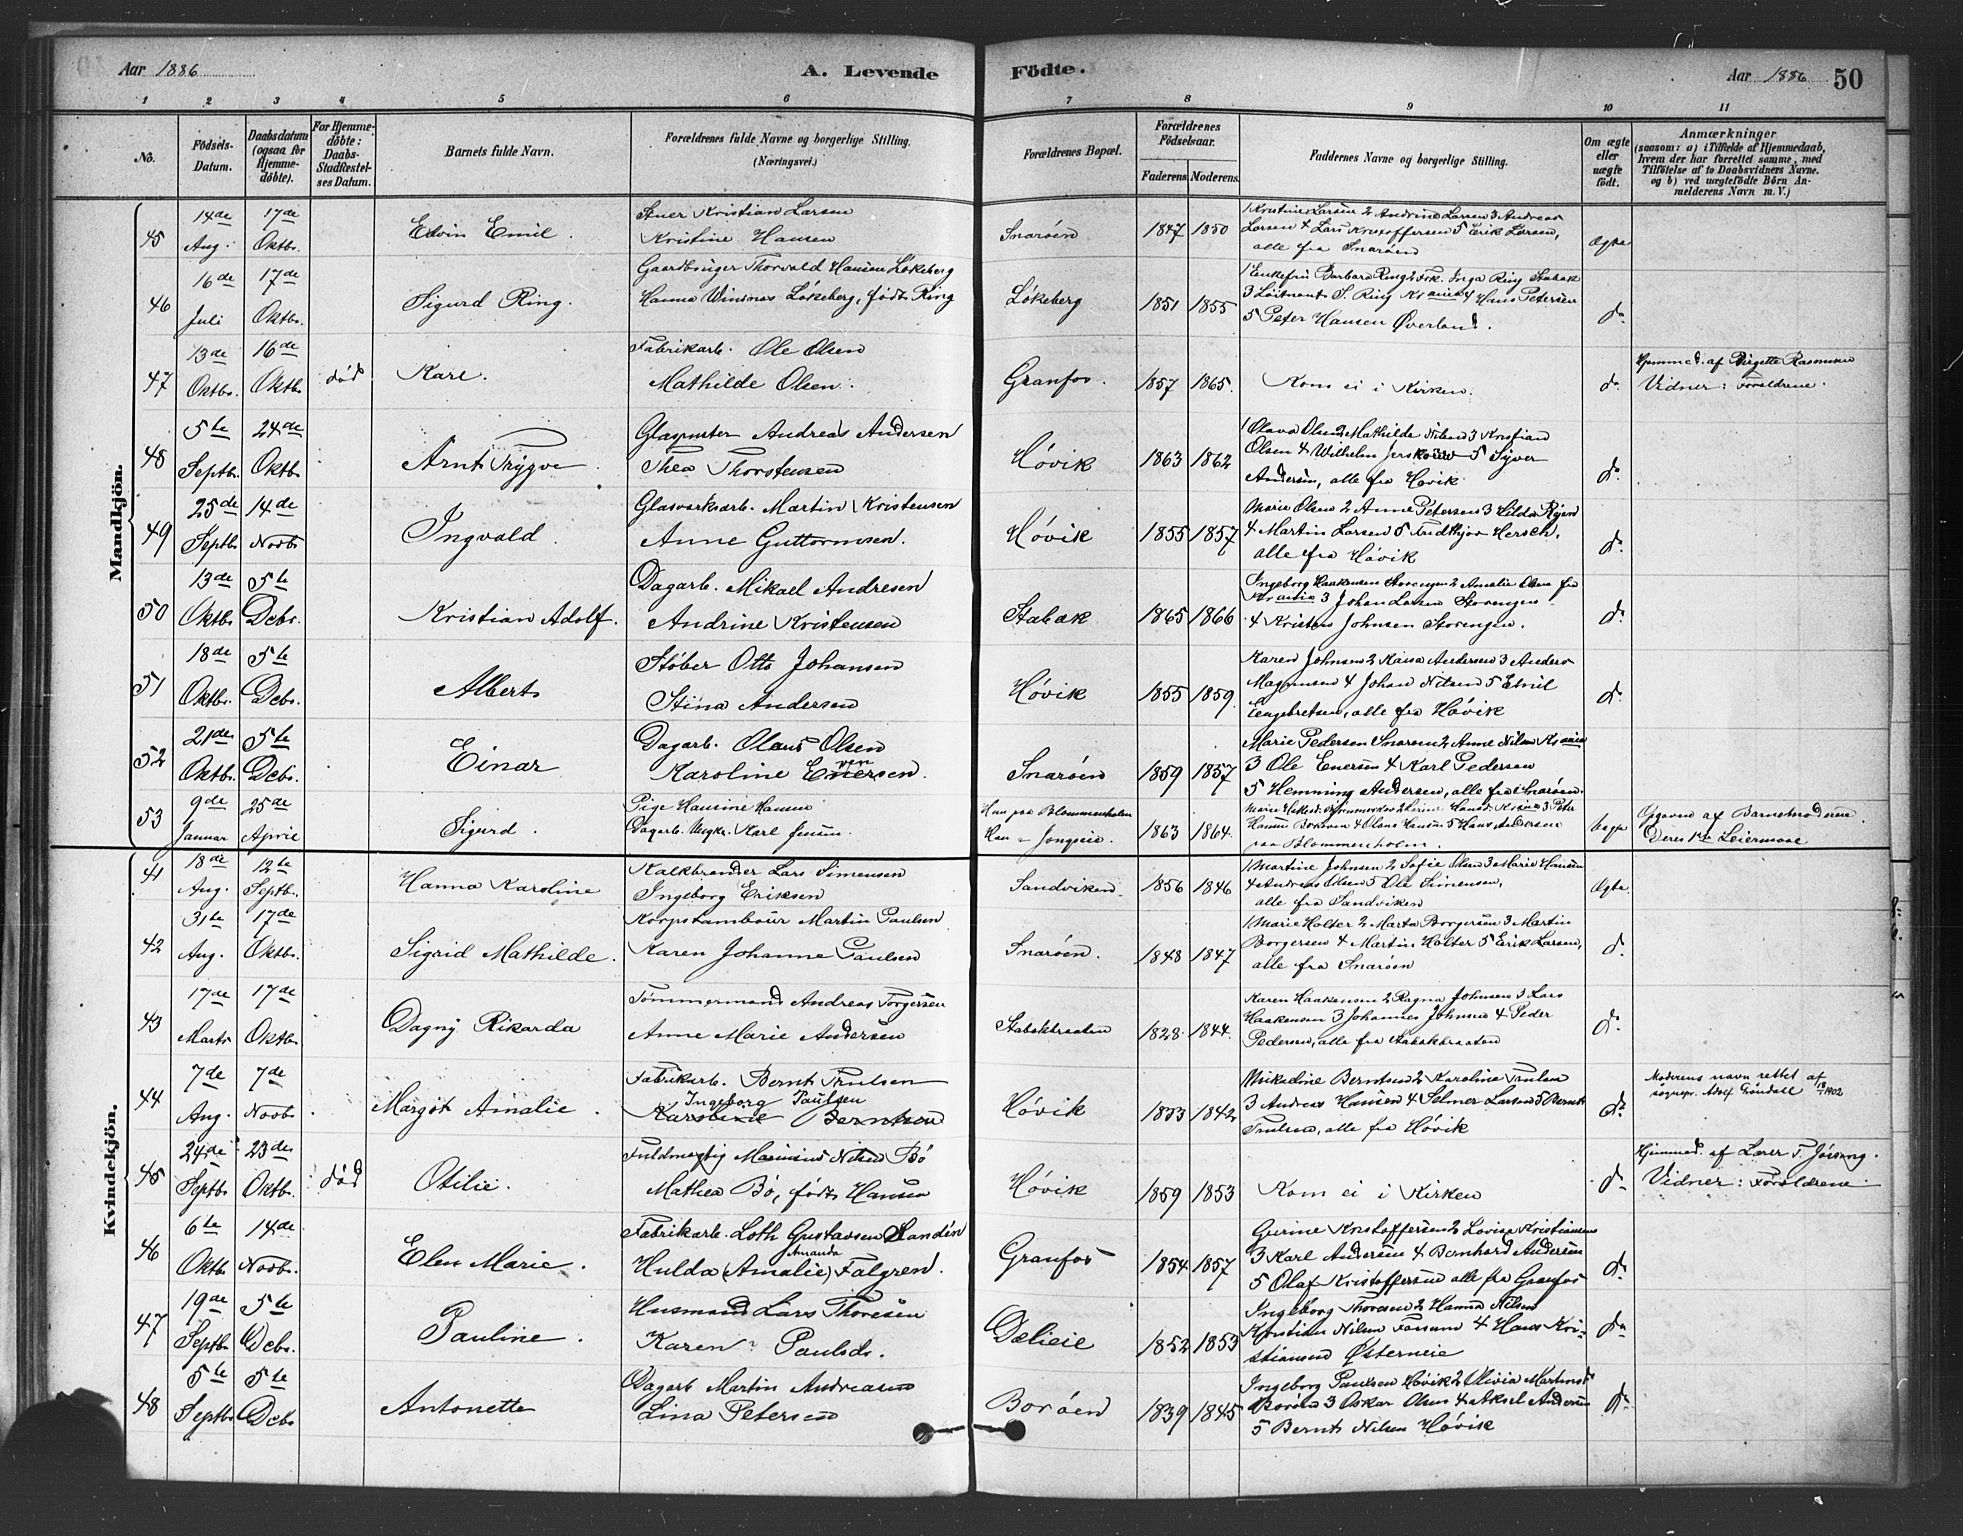 Aar 1886
A. Levende
Födte.
Aar 1886
50
1 2 3 4 5 6 7 8 9 10 11
No.
Födsels-Datum.
Daabsdatum (ogsaa for Hjemmedöbte).
For Hjemmedöbte: Daabs-Stadfæstelses Datum.
Barnets fulde Navn.
Forældrenes fulde Navne og borgerlige Stilling.
(Næringsvei.)
Forældrenes Bopæl.
Forældrenes Födselsaar.
Faderens. Moderens.
Faddernes Navne og borgerlige Stilling.
Om ægte eller uægte födt.
Anmærkninger
(saasom: a) i Tilfælde af Hjemmedaab, hvem der har forrettet samme, med Tilföielse af to Daabsvidners Navne. og b) ved uægtefödte Börn Anmelderens Navn m. V.)
Mandkjön.
45 14de Aug. 17de Oktbr. Edvin Emil. Kristian Larsen
Kristine Hansen Snarøen 1847 1850 1 Kristine Larsen 2 Andrine Larsen 3 Andreas
Larsen 4 Lars Kristoffersen 5 Erik Larsen,
alle fra Snarøen Ægte
46 16de Juli 17de Oktbr. Sigurd Ring. Gaardbruger Thorvald Hansen Løkeberg
Hanna Winsnes Løkeberg, født Ring Løkeberg 1851 1855 1 Enkefru Barbara Ring 2 Frk. Inga Ring Stabæk
3 Løitnant S. Ring Kr ania 4 Hans Petersen
5 Peter Hansen Øverland. do
47 13de Oktbr. 16de Oktbr. død Kare. Fabrikarb. Ole Olsen
Mathilde Olsen. Granfos. 1857 1865. Kom ei i Kirken. do Hjemmed. af Birgitte Rasmussen
Vidner: Forældrene.
48 5te Septbr. 24de Oktbr. Arnt Trygve Glaspuster Andreas Andersen
Thea Thorstensen Høvik 1863 1862 1 Olava Olsen 2 Mathilde Nilsen 3 Kristian
Olsen 4 Wilhelm 5 Syver
Andersen, alle fra Høvik do
49 25de Septbr. 14de Novbr. Ingvald. Glasværksarb. Martin Kristensen
Anne Guttormsen. Høvik 1855 1857 Marie Olsen 2 Anne Petersen 3 Hilda
4 Martin Larsen 5 Fridthjov Hersch,
alle fra Høvik do
50 13de Oktbr. 5te Decbr. Kristian Adolf. Dagarb. Mikael Andresen
Andrine Kristensen Stabæk 1865 1866 Ingeborg Haakensen Storengen 2 Amalie Olsen fra
Kr ania 3 Johan Larsen Storengen
4 Kristen Johnsen Storengen. do
51 18de Oktbr. 5te Decbr. Albert Støber Otto Johansen
Stina Andersen Høvik 1855 1859. Karen Johnsen 2 Kaisa Andersen 3 Anders
Magnusen 4 Johan Nilsen 5 Emil
Engebretsen, alle fra Høvik do
52 21de Oktbr. 5te Decbr. Einar Dagarb. Olaus Olsen
Karoline Enersen. Snarøen 1859 1857 Marie Pedersen Snarøen 2 Anne Nilsen Kr ania
3 Ole Enersen 4 Karl Pedersen
5 Hemming Andersen, alle fra Snarøen.
53 9de Januar 25de April Sigurd. Pige Hansine Hansen
Dagarb. Ungk. Karl Jensen. Hun paa Blommenholm
Han " 1863 1864. Hansen 4 Olaus Hansen 5 Hans Andersen
paa Blommenholm. Uægte Opgivend af Barnemoderen.
Deres 1ste Leiermaal
Kvindekjön.
41 18de Aug. 12te Septbr. Hanna Karoline Kalkbrænder Lars Simensen
Ingeborg Eriksen Sandviken 1856 1846 1 Martine Johnsen 2 Sofie Olsen 3 Marie Hansen
4 Andreas Olsen 5 Ole Simensen,
alle fra Sandviken Ægte.
42 31te Aug. 17de Oktbr. Sigrid Mathilde. Korpstambour Martin Paulsen
Karen Johanne Paulsen Snarøen. 1848 1847 1 Marie Holter 2 Marta Borgersen 3 Martin
Borgersen 4 Martin Holter 5 Erik Larsen,
alle fra Snarøen do
43 17de Marts 17de Oktbr. Dagny Rikarda Tømmermand Andreas Torgersen
Anne Marie Andersen Stabækbraaten 1828. 1844. Karen Haakensen 2 Ragna Johnsen 3 Lars
Haakensen 3 Johannes Johnsen 4 Peder
Pedersen, alle fra Stabækbraaten do
44 7de Aug. 7de Novbr. Margot Amalie. Fabrikarb. Bernt Trulsen
Ingeborg Paulsen
Karoline Berntsen Høvik 1853 1842 Mikaline Berntsen 2 Karoline Trulsen
3 Andreas Hansen 4 Selmer Larsen 5 Bernt
Trulsen, alle fra Høvik do Moderens navn rettet af
sognepr. Adolf Grøndahl 1902
45 24de Septbr. 23de Oktbr. død Otilie. Fuldmægtig Marinius Nilsen Bø
Mathea Bø, født Hansen Høvik 1859 1853 Kom ei i Kirken do Hjemmed. af Lærer
Vidner: Forældrene
46 6te Oktbr. 14de Novbr. Elen Marie. Fabrikarb. Loth Gustavsen Sandén
Amanda
Hulda (Amalie) Falgren. Granfos 1854 1857 Gurine Kristoffersen 2 Lovise Kristiansen
3 Karl Andersen 4 Bernhard Andersen
5 Olaf Kristoffersen alle fra Granfos do
47 19de Septbr. 5te Decbr. Pauline. Husmand Lars Thoresen
Karen Paulsd. Dælieie 1852 1853 Ingeborg Thoresen 2 Hanna Nilsen
Kristian Nilsen Fossum 4 Hans Kri-
stiansen Østerneie do
48 5te Septbr. 5te Decbr. Antonette Dagarb Martin Andreasen
Lina Petersen Borøen 1839 1845 Ingeborg Paulsen Høvik 2 Olivia Martinsd
Borøen 3 Oskar Olsen 4 Aksel Andersen
5 Bernt Nilsen Høvik do